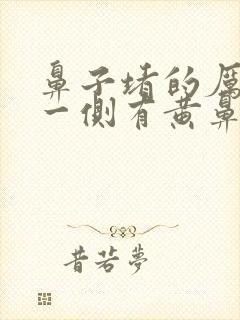 鼻子堵的厉
一侧有黄鼻
昔若梦